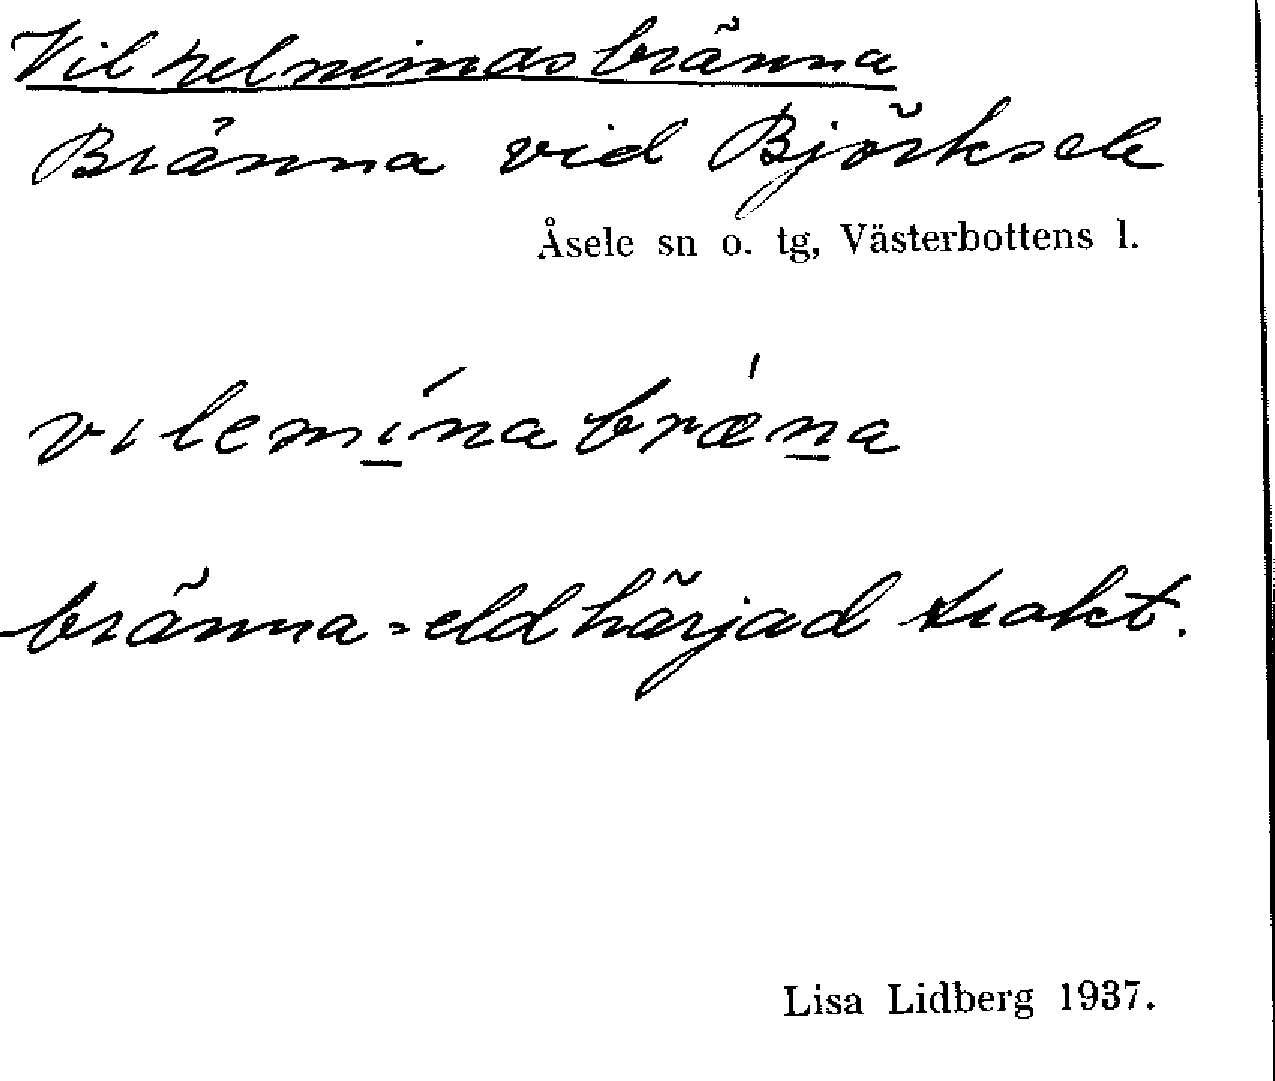 Vilhelmimasbränna
Bränna vid Björksele
Åsele sn o. tg, Västerbottens l.
vılemı̱́nabrǽṉa
bränna = eldhärjad trakt.
Lisa Lidberg 1937.